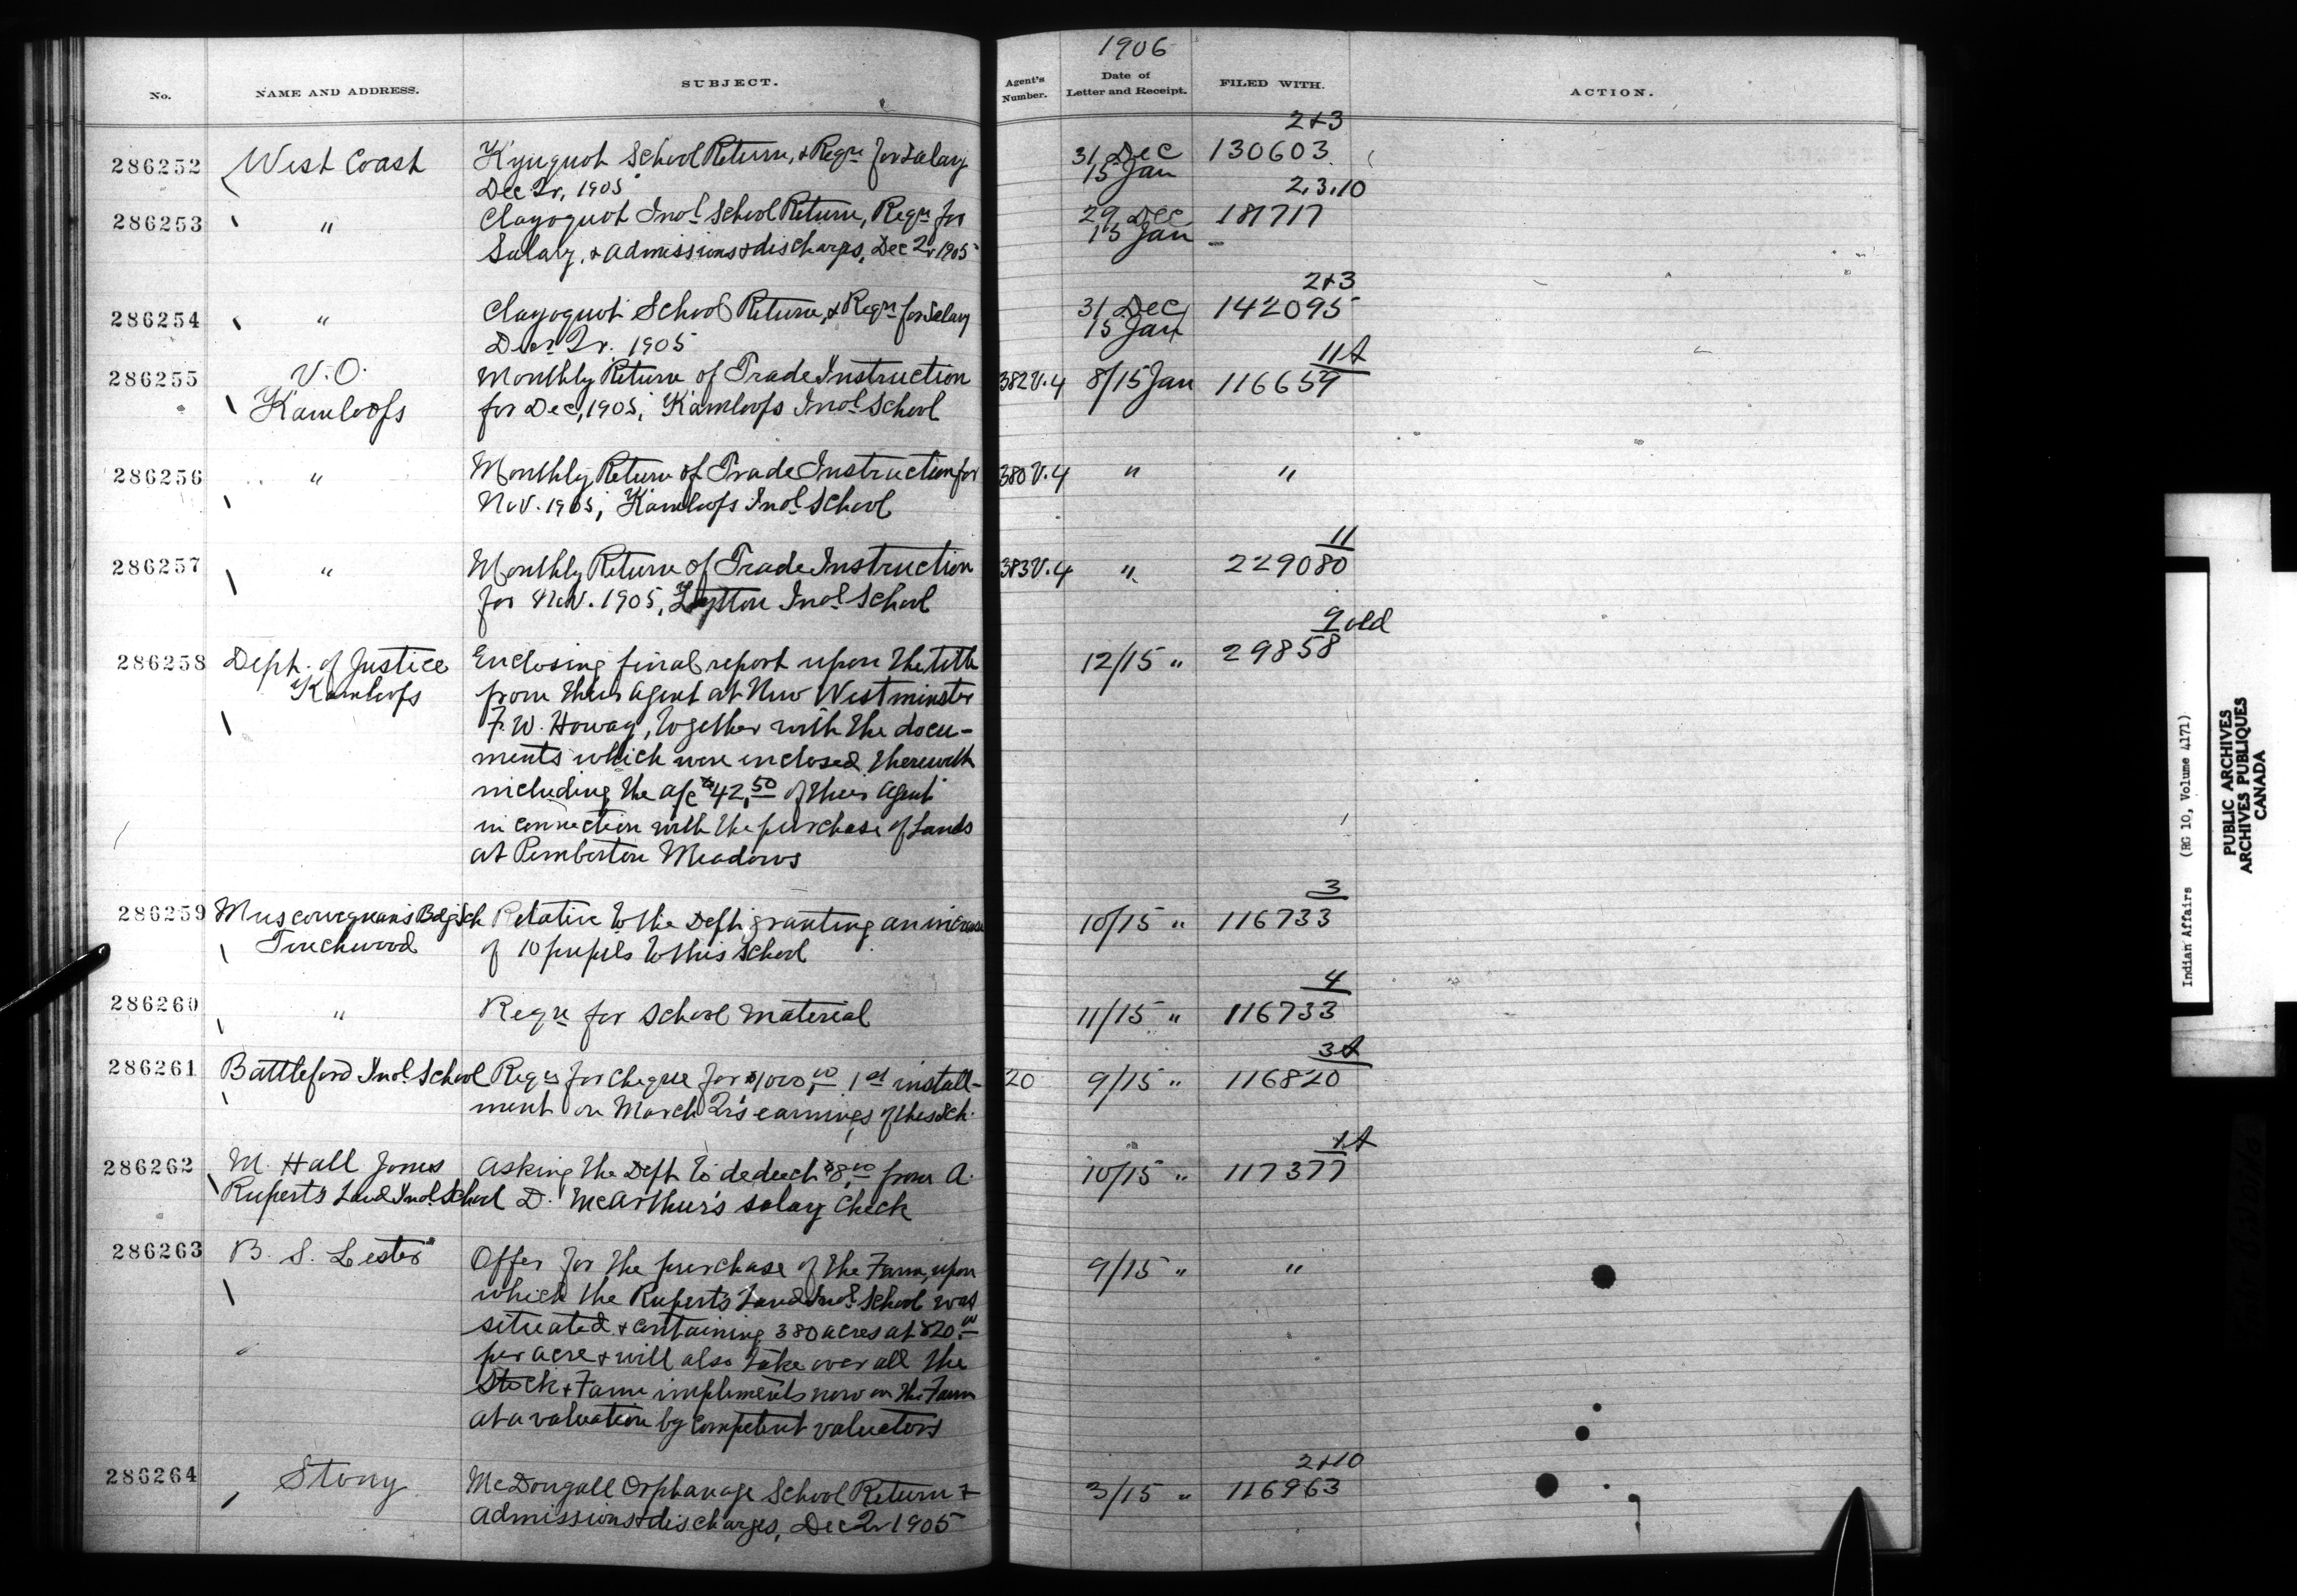 1906
No. NAME AND ADDRESS. SUBJECT. Agent's Number. Date of Letter and Receipt. FILED WITH. ACTION.
2+3
286252 West Coast Kyuquot School Return, & Reqn for Salary 31 Dec 130603
Dec Qr, 1905 15 Jan
2.3.10
286253 " Clayoquot Indl School Return, Reqn for 29 Dec 181717
Salary, & admissions & discharges, Dec Qr 1905 15 Jan
2+3
286254 " Clayoquot School Return, & Reqn for Salary 31 Dec 142095
Dec Qr. 1905 15 Jan
11A
286255 V.O. Monthly Return of Trade Instruction 382 V.4 8/15 Jan 116659
Kamloops for Dec, 1905, Kamloops Indl School
286256 " Monthly Return of Trade Instruction for 380 V.4 " "
Nov. 1905, Kamloops Indl School
11
286257 " Monthly Return of Trade Instruction 383 V.4 " 229080
for Nov. 1905, Lytton Indl School
9 old
286258 Deph. of Justice Enclosing final report upon the title 12/15 " 29858
Kamloops from their agent at New Westminster
F. W. Howay, together with the docu-
ments which were enclosed therewith
including the a/c $42.50 of their agent
in connection with the purchase of Lands
at Pemberton Meadows
3
286259 Muscowequan's Bdg Sch Relative to the Dept granting an increase 10/15 " 116733
Touchwood of 10 pupils to this School
4
286260 " Reqn for School material 11/15 " 116733
3A
286261 Battleford Indl School Reqn for cheque for $1000.00 1st install- 20 9/15 " 116820
ment on March Qr's earnings of this Sch.
1A
286262 M. Hall Jones Asking the Dept to deduct $8.00 from A. 10/15 " 117377
Rupert's Land Indl School D. McArthur's salary check
286263 B. S. Lester Offer for the purchase of the Farm, upon 9/15 " "
which the Rupert's Land Indl School was
situated & containing 380 acres at $20.00
per acre & will also take over all the
Stock & Farm impliments now on the Farm
at a valuation by competent valuators
2+10
286264 Stony McDougall Orphanage School Return & 3/15 " 116963
admissions & discharges, Dec Qr 1905
Indian Affairs (RG 10, Volume 4171)
PUBLIC ARCHIVES
ARCHIVES PUBLIQUES
CANADA